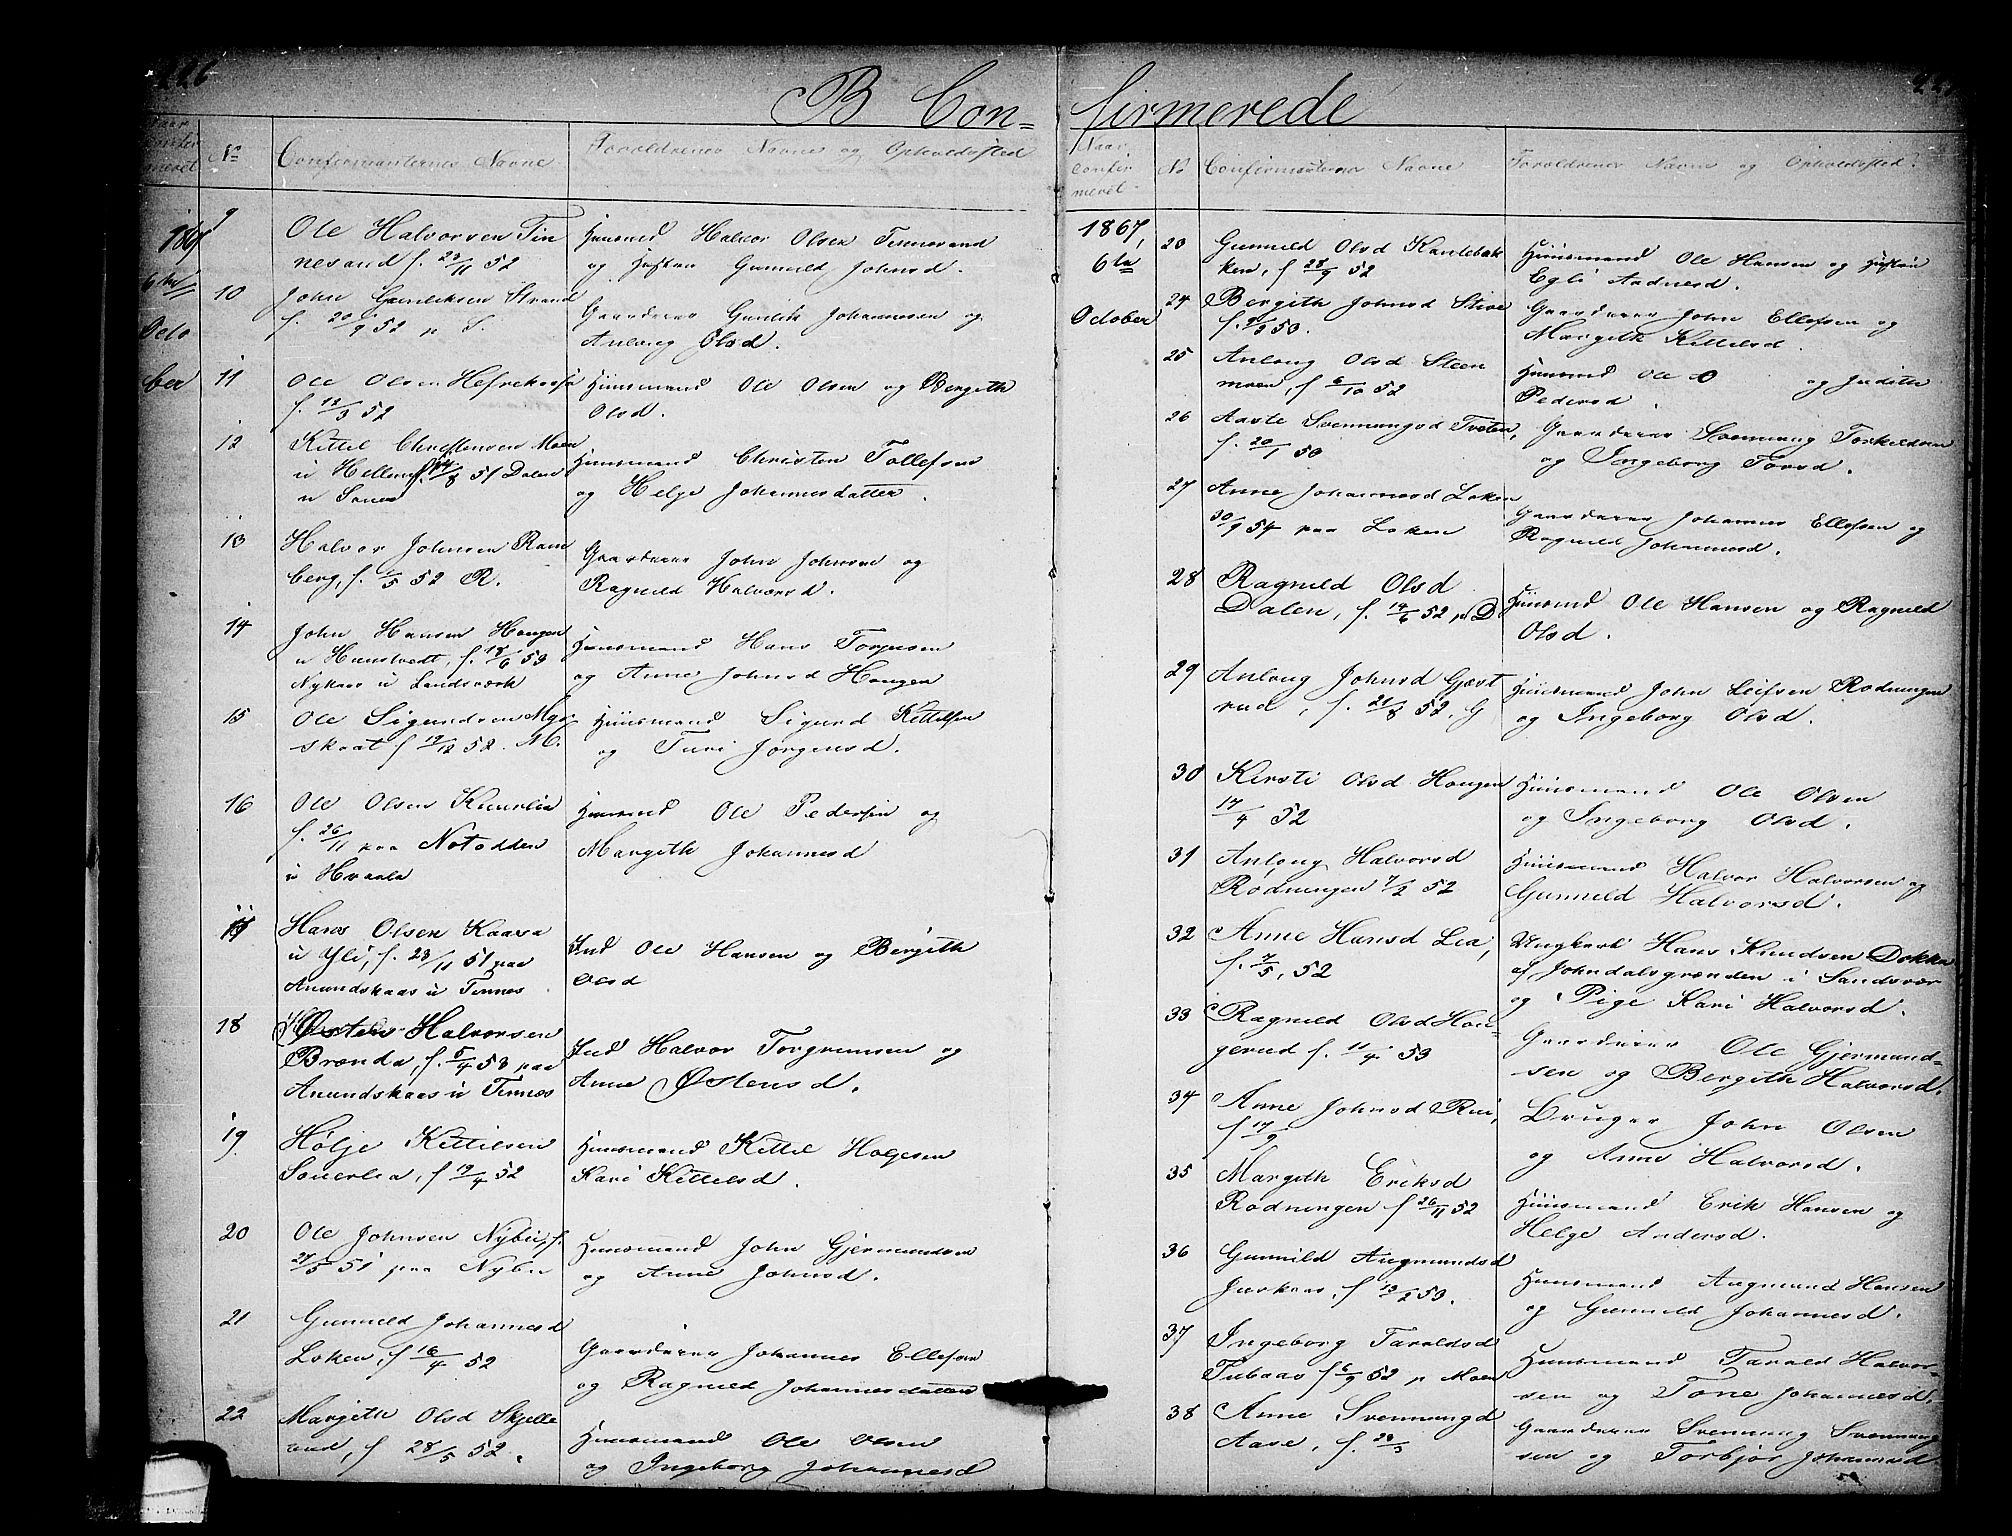 226
B Confirmerede
227
Naar confirmeret
No
Confirmanternes Navne
Forældrenes Navne og Opholdssted
1867
6te
Octo
ber
9
Ole Halvorsen Tin
nesand f. 23/11 52
Huusmd Halvor Olsen Tinnesand
og Hustru Gunnild Johnsd.
10
John Gunliksen Strand
f. 20/9 52 p S.
Gaardbrug Gunlik Johannesen og
Anlaug Olsd.
11
Ole Olsen
f. 12/3 52
Huusmand Ole Olsen og Bergith
Olsd.
12
Kittel Christensen Moen
u Hellem f. 51 Dalen
u
Huusmand Christen Tollefsen
og Helge Johannesdatter.
13
Halvor Johnsen Ram
berg, f. 1/5 52 R.
John Johnsen og
Ragnild Halvorsd.
14
John Hansen Haugen
u f. 18/6 53
Nykaas u Landsværk
Huusmand Hans Torjusen
og Anne Johnsd Haugen
15
Ole Sigurdsen Myr
skaat f 19/12 52. M.
Huusmand Sigurd Kittelsen
og Turi Jørgensd.
16
Ole Olsen
f. 26/11 paa Notodden
u Hvaala
Huusmd Ole Pedersen og
Margith Johannesd
17
Hans Olsen Kaasa
u Yli, f. 23/11 51 paa
Anundskaas u Tinnes
Ind Ole Hansen og Bergith
Olsd
18
Østen Halvorsen
Brænda, f. 5/4 53 paa
Anundskaas u Tinnes
Ind Halvor Torgrimsen og
Anne Østensd.
19
Hølje Kittilsen
f 19/4 52
Huusmand Kittel Holjesen
Kari Kittelsd.
20
Ole Johnsen Nybu, f.
21/5 51 paa Nybu
Huusmand John Gjermundsen
og Anne Johnsd.
21
Gunnild Johannesd
Løken, f 16/4 52
Johannes Ellefsen
og Ragnild Johannesdatter
22
Margith Olsd Skjelle
rud, f 28/5 52.
Huusmand Ole Olsen
og Ingeborg Johannesd
Naar confirmeret
No
Confirmanternes Navne
Forældrenes Navne og Opholdssted.
1867,
6te
October
23
Gunnild Olsd Kastebak
ken, f 28/9 52
Huusmand Ole Hansen og Hustru
Egli Aadnesd.
24
Bergith Johnsd
f. 50.
John Ellefsen og
Margith Kittelsd.
25
Anlaug Olsd Steen
moen, f 6/10 52
Huusmd Ole O og Juditte
Pedersd.
26
Aaste Svennungsd Tveten,
f. 20/1 50
Svennung Torkildsen
og Ingeborg Torsd.
27
Anne Johannesd Løken
30/9 54 paa Løken
Johannes Ellefsen og
Ragnild Johannesd.
28
Ragnild Olsd
Dalen, f. 14/6 52, p D
Huusmd Ole Hansen og Ragnild
Olsd.
29
Anlaug Johnsd Gjæst
rud, f. 21/8 52. G
Huusmand John Leifsen Rodningen
og Ingeborg Olsd.
30
Kirsti Olsd Haugen
17/4 52
Huusmand Ole Olsen
og Ingeborg Olsd.
31
Anlaug Halvorsd
Rodningen 7/2 52
Huusmand Halvor Halvorsen og
Gunnild Halvorsd.
32
Anne Hansd Lia,
f. 7/5, 52
Ungkarl Hans Knudsen Dokka
af Johndalsgrænden i Sandsvær
og Pige Kari Halvorsd.
33
Ragnild Olsd Hau
gerud f. 11/4 53
Ole Gjermund-
sen og Bergith Halvorsd.
34
Anne Johnsd Rui,
f 17/9
Bruger John Olsen
og Anne Halvorsd.
35
Margith Eriksd
Rodningen f 26/11 52
Huusmand Erik Hansen og
Helge Andersd.
36
Gunnild Augmundsd
f 13/2 53.
Huusmand Augmund Hansen
og Gunnild Johannesd.
37
Ingeborg Taraldsd
Tubaas f 6/9 52 p Moen
Huusmand Tarald Halvor-
sen og Tone Johannesd.
38
Anne Svennungd
Aase, f. 28/3
Svennung Svennung
sen og Torbjør Johannesd